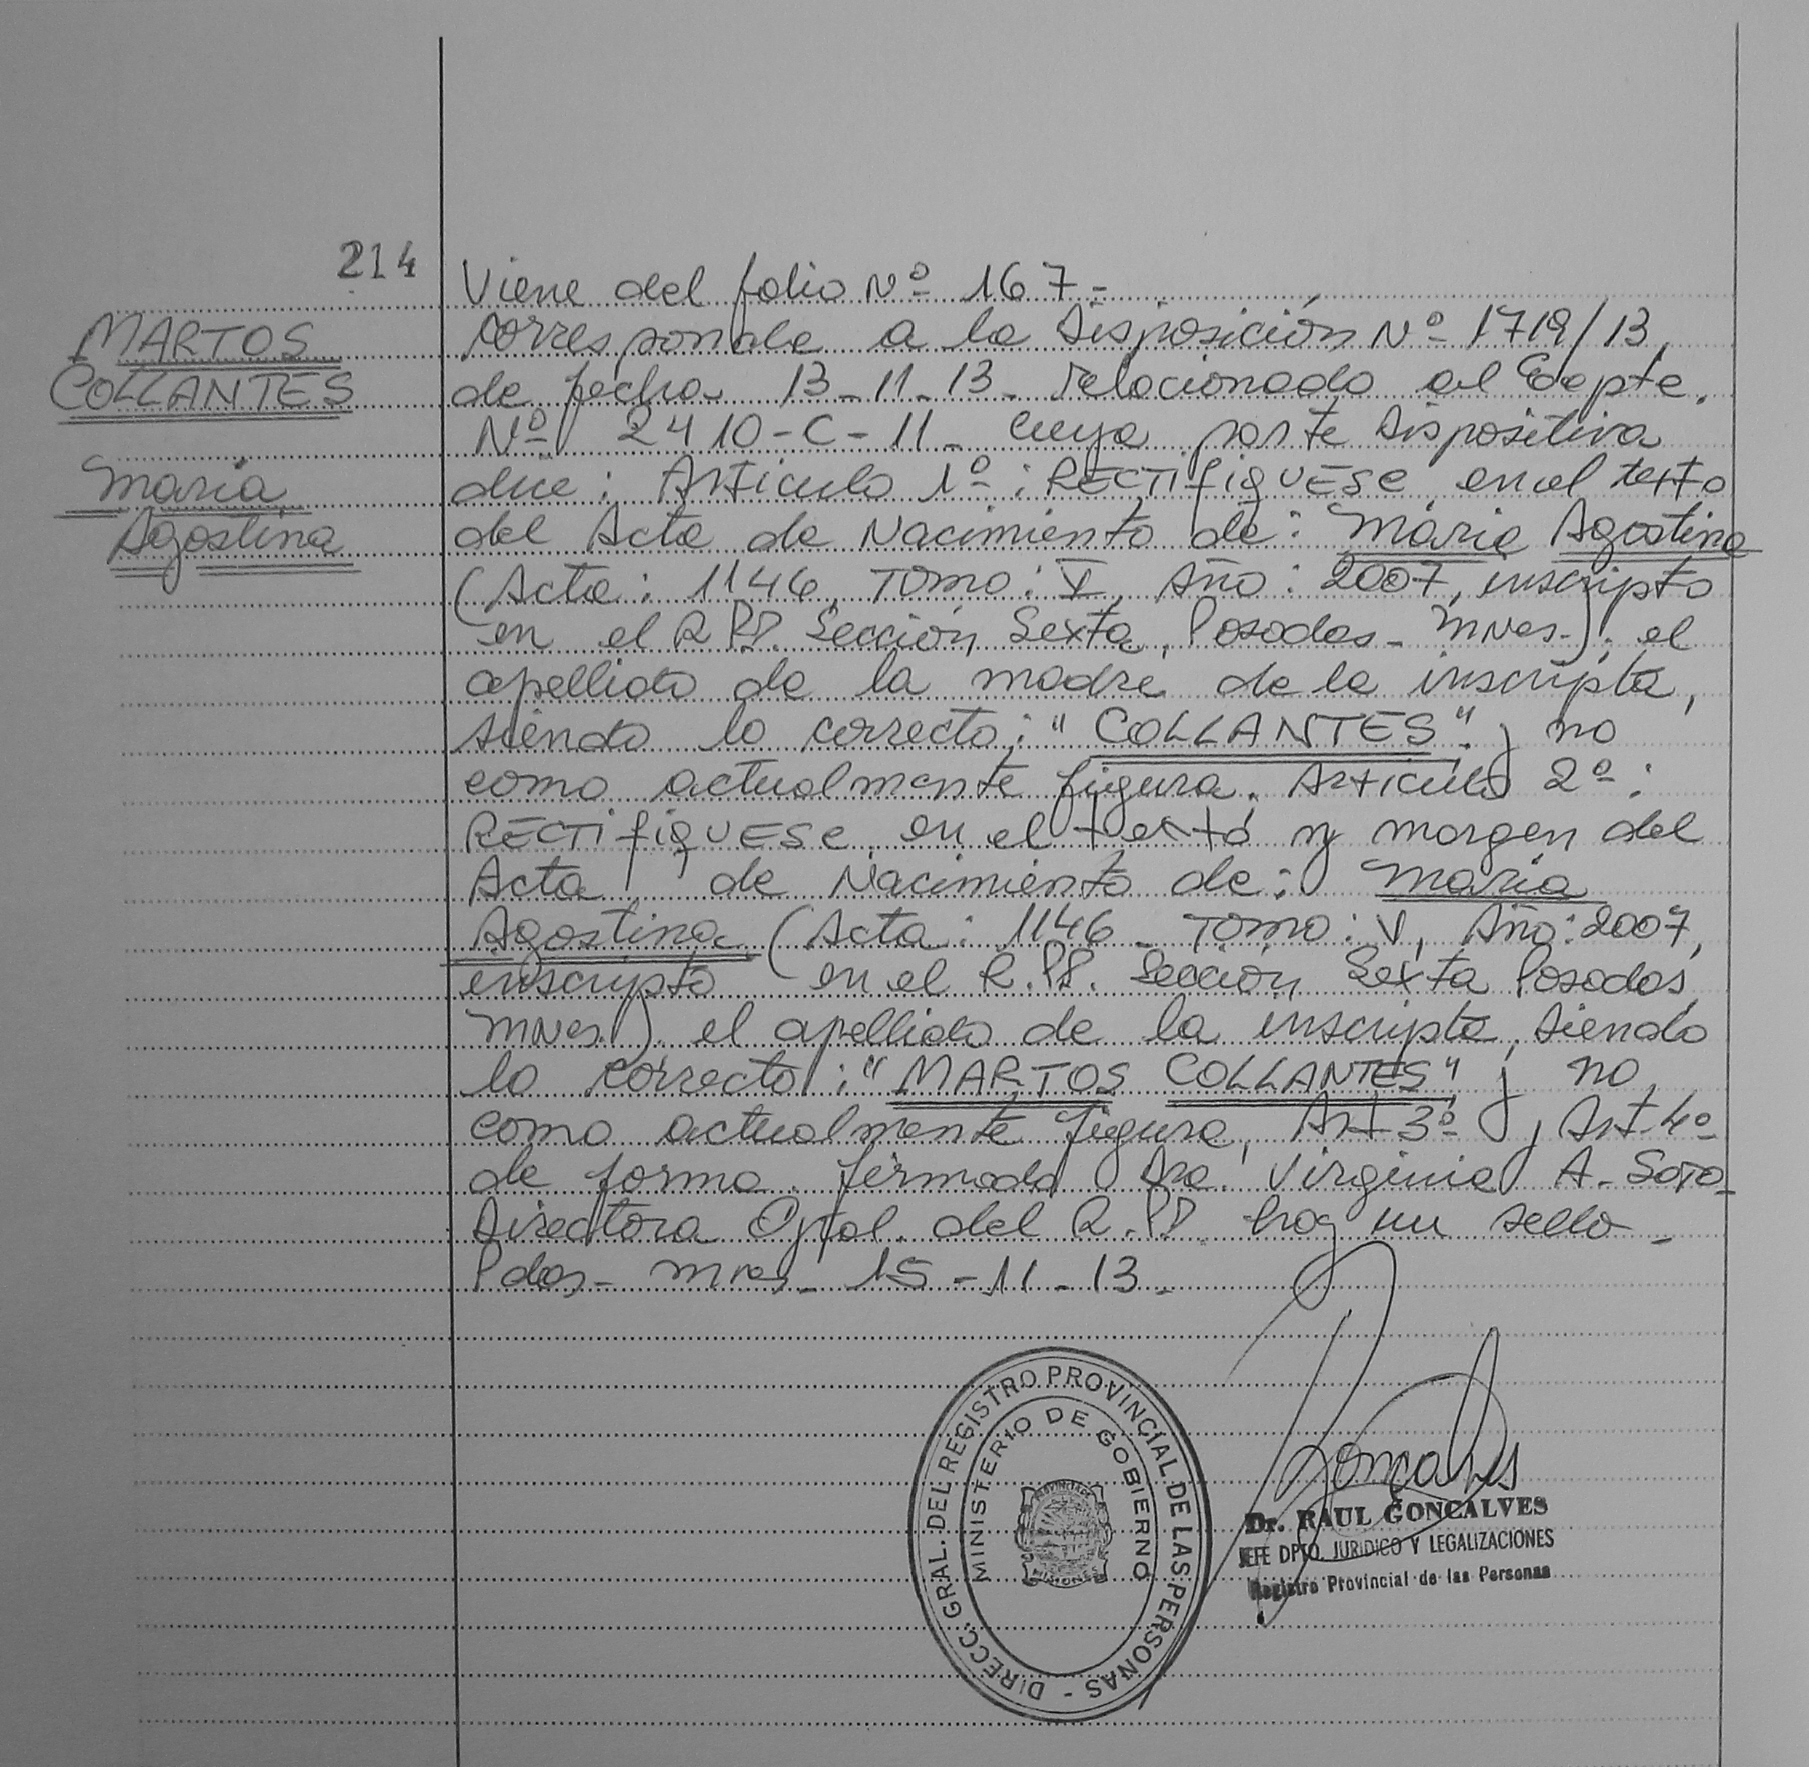 214
MARTOS
COLLANTES
María
Agostina
Viene del folio Nº 167-
corresponde a la Disposición Nº 1719/13,
de fecha 13-11-13- relacionado al Expte.
Nº 2410-C-11- cuya parte Dispositiva
dice: Artículo 1º: RECTIFIQUESE en el texto
del Acta de Nacimiento de: María Agostina
(Acta: 1146, Tomo: V, Año: 2007, inscripta
en el R.P.P. Sección Sexta, Posadas- Mnes-). el
apellido de la madre de la inscripta,
siendo lo correcto: "COLLANTES" y no
como actualmente figura. Artículo 2º:
RECTIFIQUESE en el texto y margen del
Acta de Nacimiento de: María
Agostina (Acta: 1146- Tomo: V, Año: 2007,
inscripta en el R.P.P. Sección Sexta Posadas,
Mnes.). el apellido de la inscripta, siendo
lo correcto: "MARTOS COLLANTES" y no
como actualmente figura, Art 3º y Art 4º
de forma. firmado Dra. Virginia A. Soto-
Directora Gral. del R.P.P. hay un sello-
Pdas- Mnes- 15-11-13-
DIRECC. GRAL. DEL REGISTRO PROVINCIAL DE LAS PERSONAS -
MINISTERIO DE GOBIERNO
PROVINCIA DE
MISIONES
Gonçalves
Dr. RAUL GONCALVES
JEFE DPTO. JURIDICO Y LEGALIZACIONES
Registro Provincial de las Personas